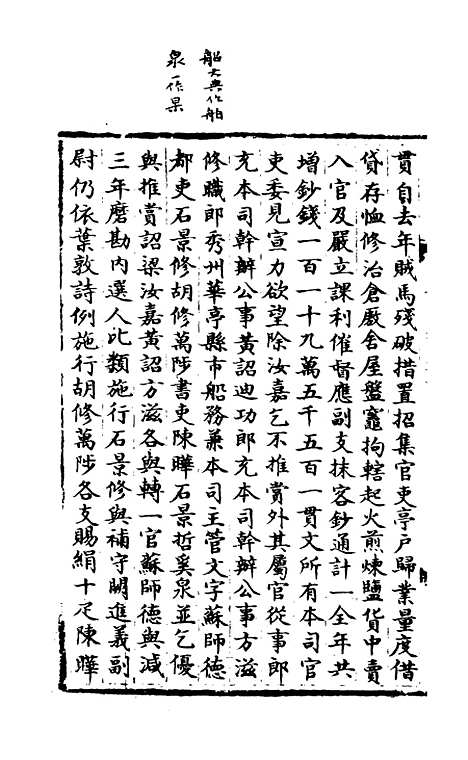 船大典作舶
泉一作杲
貫自去年賊馬殘破措置招集官吏亭户歸業量度借
貸存恤修治倉厫舍屋盤竈拘轄起火煎煉鹽貨中賣
入官及嚴立課利催督應副支抹客鈔通計一全年共
增鈔錢一百一十九萬五千五百一貫文所有本司官
吏委見宣力欲望除汝嘉乞不推賞外其屬官從事郎
充本司幹辦公事黄詔迪功郎充本司幹辦公事方滋
修職郎秀州華亭縣市船務兼本司主管文字蘇師德
都吏石景修胡修萬陟書吏陳曄石景哲奚泉並乞優
與推賞詔梁汝嘉黄詔方滋各與轉一官蘇師德與減
三年磨勘内選人比類施行石景修與補守闕進義副
尉仍依葉敦詩例施行胡修萬陟各支賜絹十疋陳曄